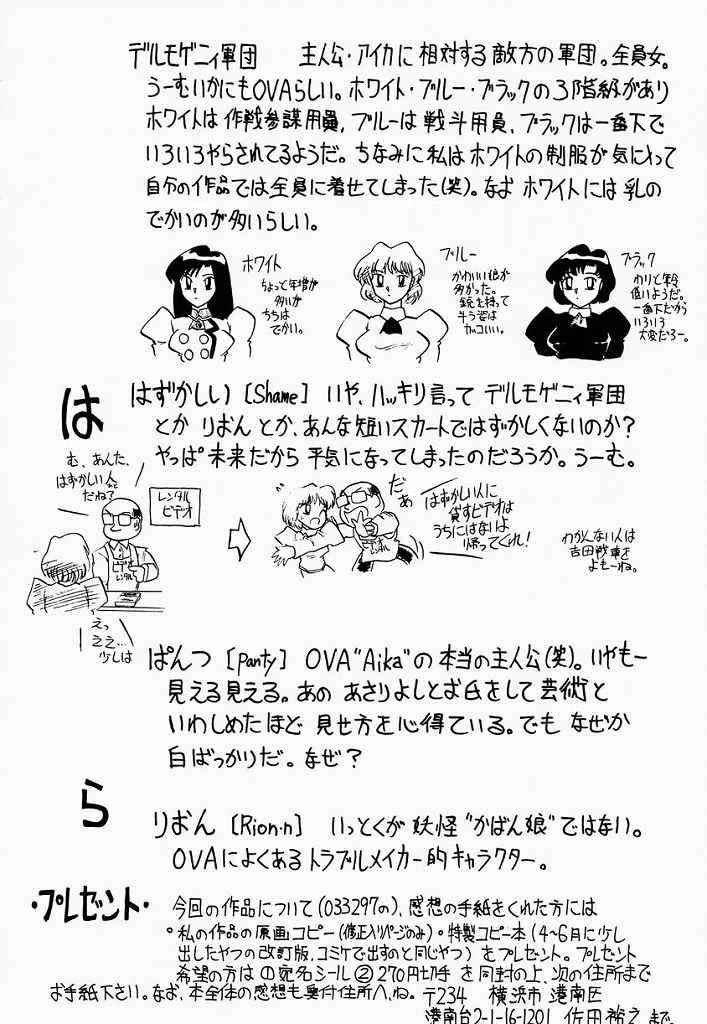 デルモゲニィ軍団　主人公・アイカに相対する敵方の軍団。全員女。
うーむいかにもOVAらしい。ホワイト・ブルー・ブラックの3階級があり
ホワイトは作戦参謀用員，ブルーは戦斗用員，ブラックは一番下で
いろいろやらされてるようだ。ちなみに私はホワイトの制服が気にいって
自分の作品では全員に着せてしまった(笑)。なおホワイトには乳の
でかいのが多いらしい。
ホワイト
ちょっと年増が
多いが
ちちは
でかい。
ブルー
かわいい娘が
多かった。
銃を持って
斗う姿は
カッコいい。
ブラック
わりと年令
低いようだ。
一番下だから
いろいろ
大変だろー。
は
はずかしい [Shame] いや、ハッキリ言って デルモゲニィ軍団
とか りおん とか、あんな短いスカートではずかしくないのか?
やっぱ未来だから 平気になってしまったのだろうか。うーむ。
む、あんた、
はずかしい人
だね?
レンタル
ビデオ
えっ
ええ…
少しは
だぁ
はずかしい人に
貸すビデオは
うちにはないよ
帰ってくれ!
わかんない人は
吉田戦車を
よもーね。
ぱんつ [panty] OVA"Aika"の本当の主人公(笑)。いやもー
見える見える。あの あさりよしとお氏をして芸術と
いわしめたほど 見せ方を心得ている。でも なぜか
白ばっかりだ。なぜ?
ら
りおん [Rion・n] いっとくが妖怪"かばん娘"ではない。
OVAによくあるトラブルメイカー的キャラクター。
・プレゼント・
今回の作品について(033297の)、感想の手紙をくれた方には
○私の作品の原画コピー(修正入りページのみ)○特製コピー本(4〜6月に少し
出したやつの改訂版、コミケで出すのと同じやつ)をプレゼント。プレゼント
希望の方は①宛名シール②270円切手を同封の上、次の住所まで
お手紙下さい。なお、本全体の感想も奥付住所へ、ね。〒234 横浜市港南区
港南台2-1-16-1201 佐田裕之まで